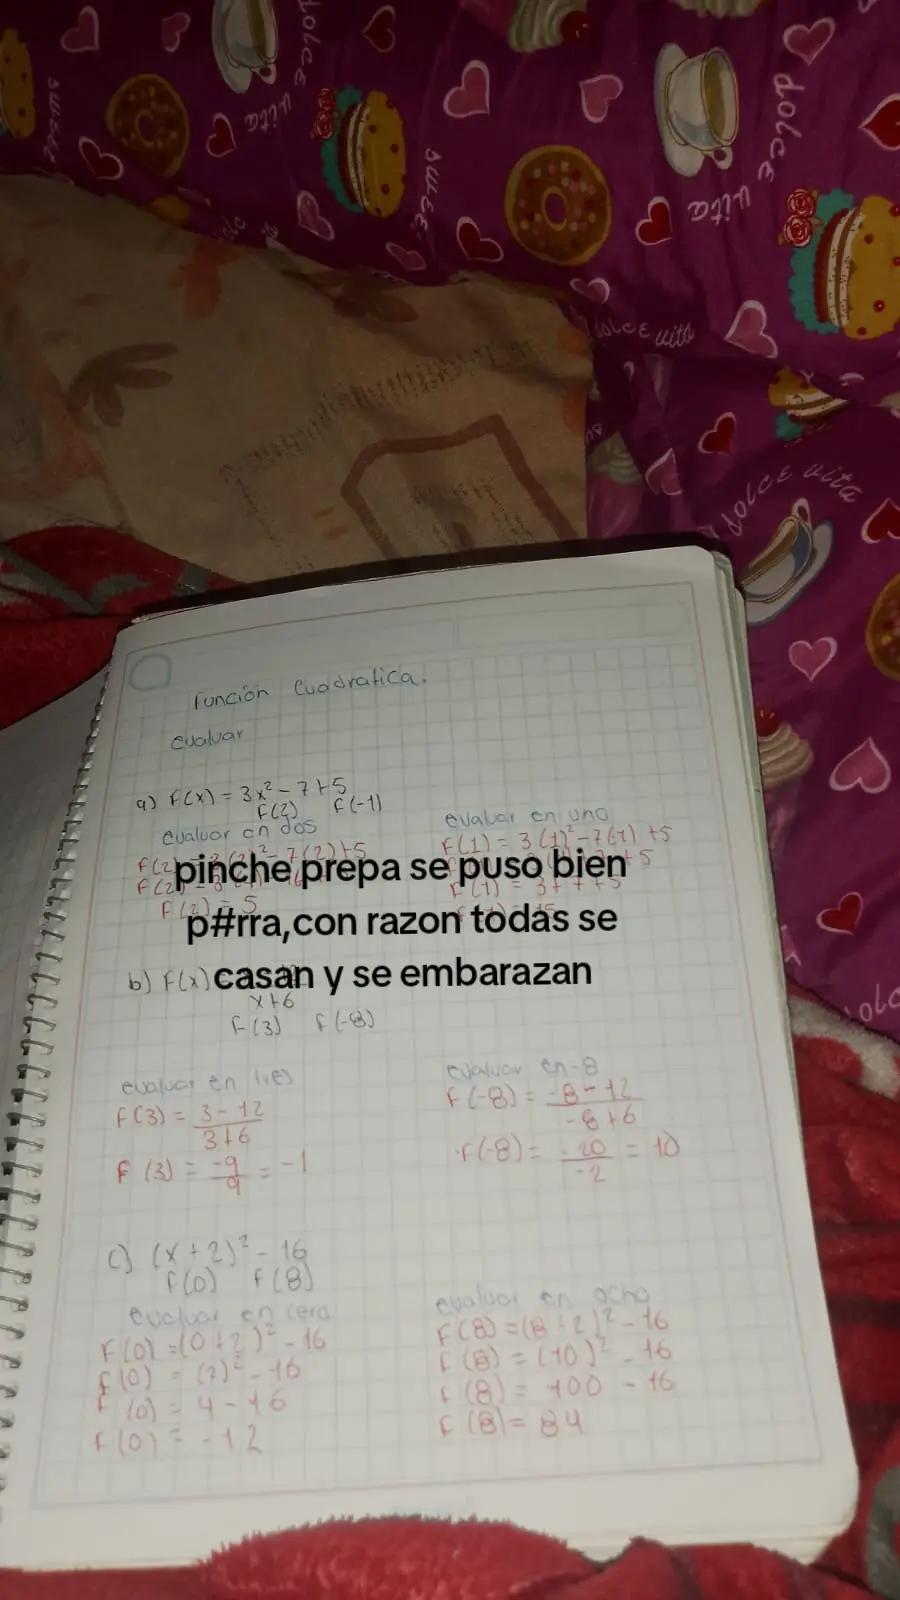 sweet
dolce
vita
sweet
dolce
vita
dolce vita
dolce vita
Función Cuadratica.
evaluar
a) F(x) = 3x² - 7+5
F(2) F(-1)
evaluar en dos
evaluar en uno
F(1) = 3(1)² - 7(1) +5
- 7(2)+5
F(2)
pinche prepa se puso bien
F(2) = 5
p#rra,con razon todas se
b) F(x)
casan y se embarazan
x+6
F(3) F(-8)
evaluar en tres
evaluar en -8
F(3) = 3 - 12
3+6
F(-8) = -8 - 12
-8+6
F (3) = -9 = -1
9
F(-8) = -20 = 10
-2
c) (x + 2)² - 16
F(0) F(8)
evaluar en cero
evaluar en ocho
F(0) =(0+2)² - 16
F(8) =(8+2)² - 16
F(0) = (2)² - 16
F(8) = (10)² - 16
F(0) = 4 - 16
F(8) = 100 - 16
F(0) = -12
F(8) = 84